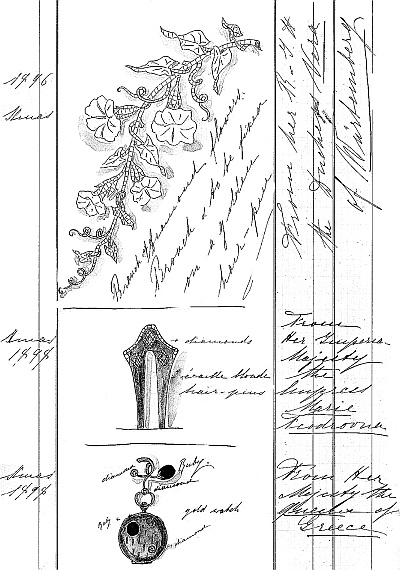 1896
Xmas
Branch of diamond flowers.
Brooch & to be placed
on a golden
hair-pin
From her R. I. H
the Duchess Vera
of Würtemberg
Xmas
1898
diamonds
blonde
hair-pins
From
Her Imperial
Majesty
the
Empress
Marie
Feodrovna
Xmas
1898
diamond
Ruby
diamond
Ruby
gold watch
diamond
From Her
Majesty the
Queen of
Greece